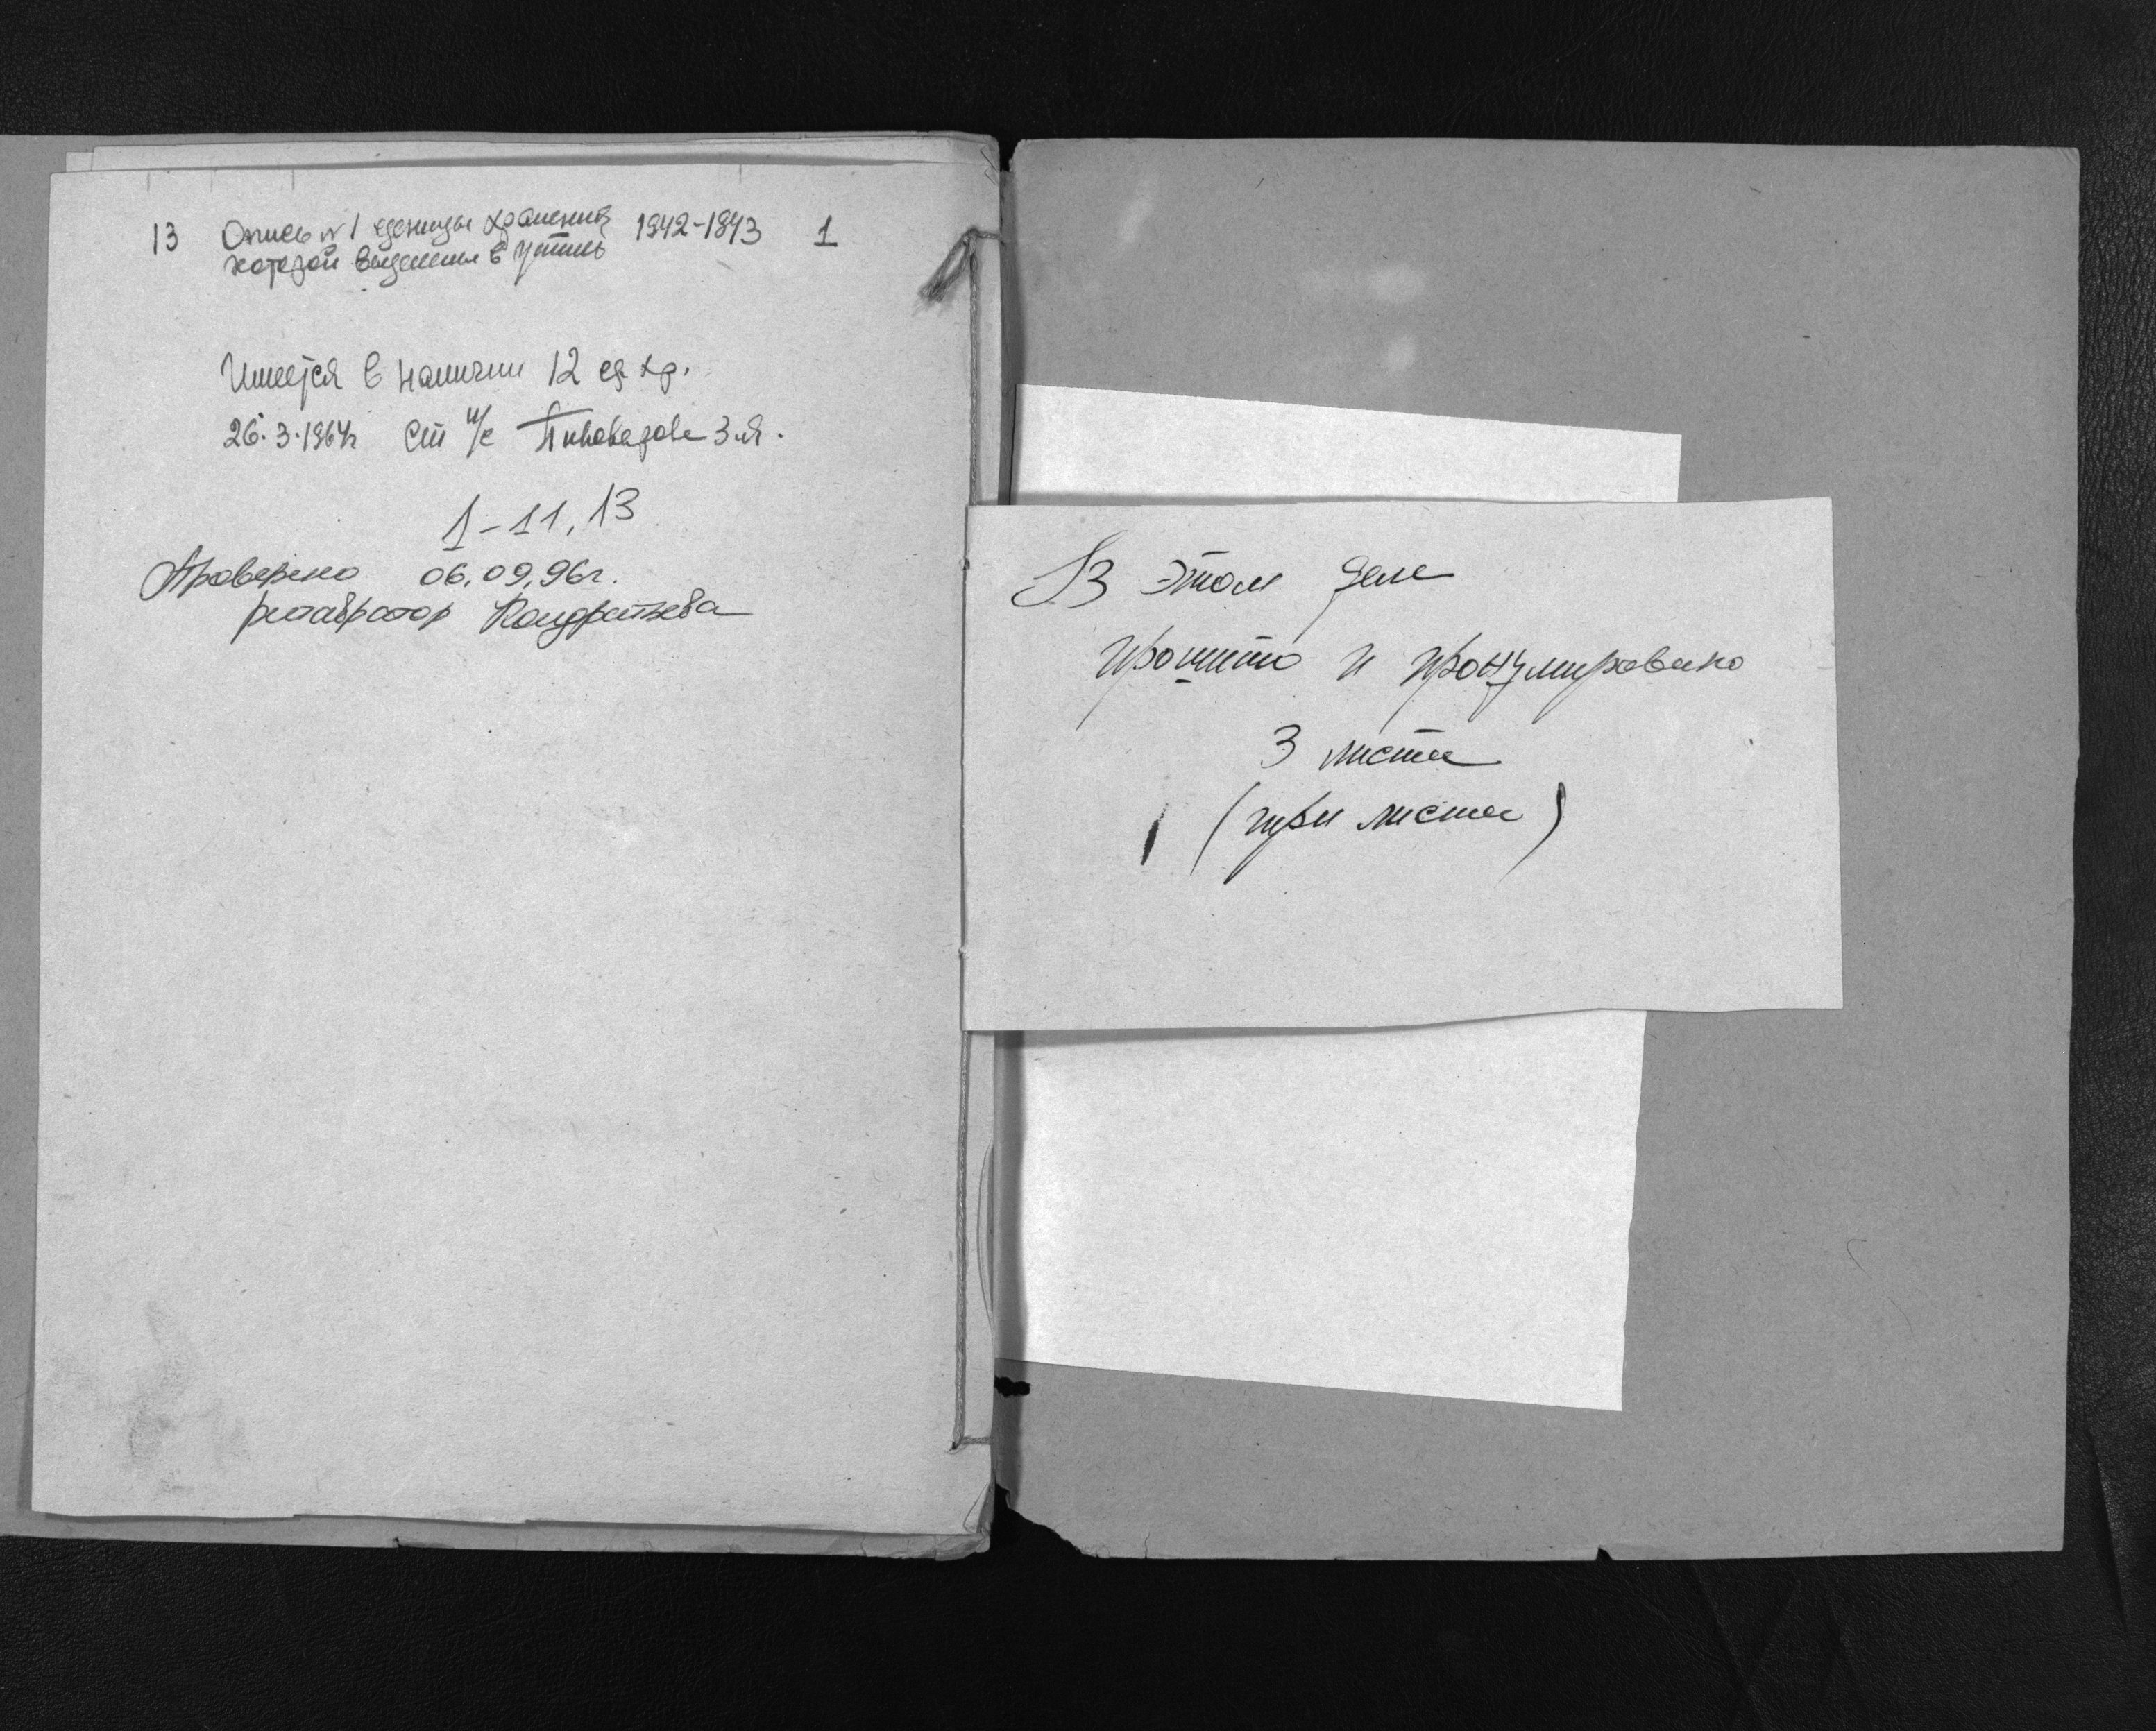 13 Опись № 1 единицы хранения 1942-1943 1
которой выделены в утиль
Имеется в наличии 12 ед. хр.
26.3.1964г ст н/с Пивоварова З.Я.
1-11, 13
Проверено 06.09.96г.
реставратор Кондратьева
В этом деле
прошито и пронумировано
3 листа
(три листа)